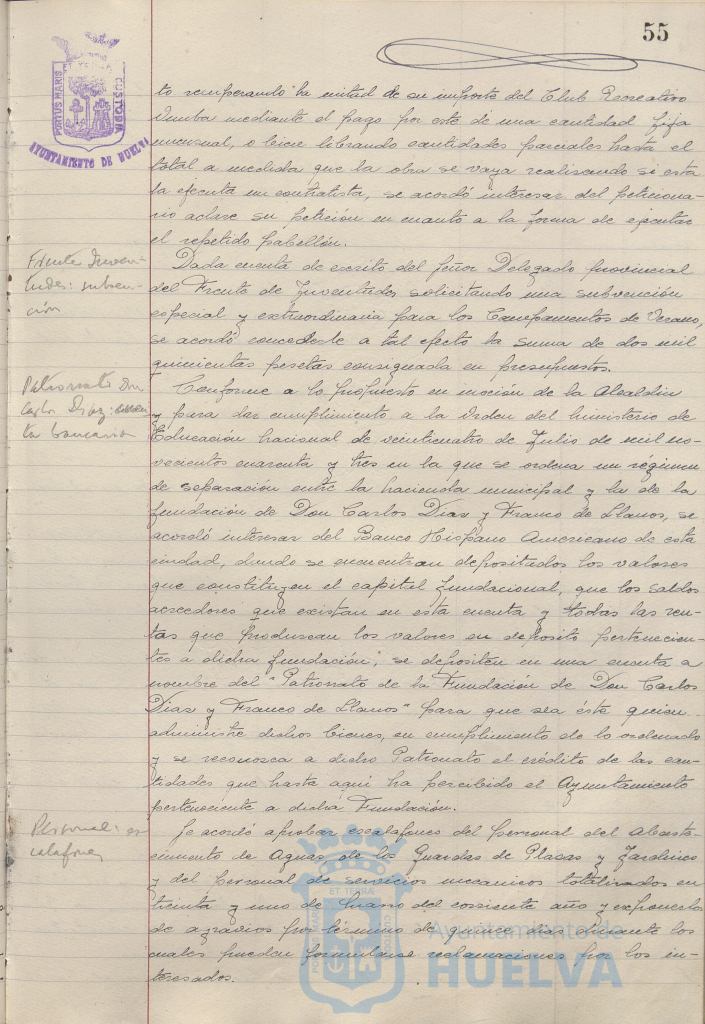 55
PORTUS MARIS
ET TERRAE
CUSTODIA
AYUNTAMIENTO DE HUELVA
to recuperando la mitad de su importe del Club Recreativo
Onuba mediante el pago por este de una cantidad fija
mensual, o bien librando cantidades parciales hasta el
total a medida que la obra se vaya realizando si esta
la ejecuta un contratista, se acordó interesar del peticiona-
rio aclare su petición en cuanto a la forma de ejecutar
el repetido pabellón.
Frente Juven-
tudes: subven-
ción
Dada cuenta de escrito del Señor Delegado provincial
del Frente de Juventudes solicitando una subvención
especial y extraordinaria para los Campamentos de Verano,
se acordó concederle a tal efecto la suma de dos mil
quinientas pesetas consignada en presupuestos.
Patronato Don
Carlos Díaz: cuen-
ta bancaria
Conforme a lo propuesto en moción de la Alcaldía
y para dar cumplimiento a la Orden del Ministerio de
Educación Nacional de veinticuatro de Julio de mil no-
vecientos cuarenta y tres en la que se ordena un régimen
de separación entre la hacienda municipal y la de la
fundación de Don Carlos Diaz y Franco de Llanos, se
acordó interesar del Banco Hispano Americano de esta
ciudad, donde se encuentran depositados los valores
que constituyen el capital fundacional, que los saldos
acreedores que existan en esta cuenta y todas las ren-
tas que produzcan los valores en depósito pertenecien-
tes a dicha fundación, se depositen en una cuenta a
nombre del "Patronato de la Fundación de Don Carlos
Diaz y Franco de Llanos" para que sea éste quien
administre dichos bienes, en cumplimiento de lo ordenado
y se reconozca a dicho Patronato el crédito de las can-
tidades que hasta aquí ha percibido el Ayuntamiento
perteneciente a dicha Fundación.
Personal: es-
calafones
Se acordó aprobar escalafones del personal del Abaste-
cimiento de Aguas, de los Guardas de Plazas y Jardines
y del personal de servicios mecánicos totalizados en
treinta y uno de Marzo del corriente año y exponerlos
de agravios por término de quince días durante los
cuales pueden formularse reclamaciones por los in-
teresados.
Ayuntamiento de
HUELVA